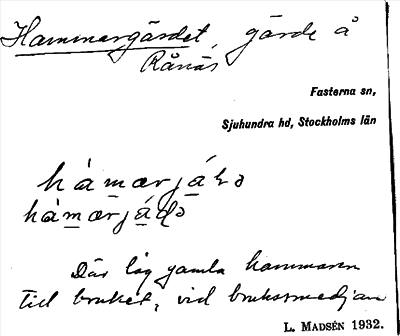 Hammargärdet, gärde å
Rånäs
Fasterna sn,
Sjuhundra hd, Stockholms län
hàmærjáɖə
Där låg gamla hammaren
till bruket, vid bruksmedjan
L. MADSÉN 1932.